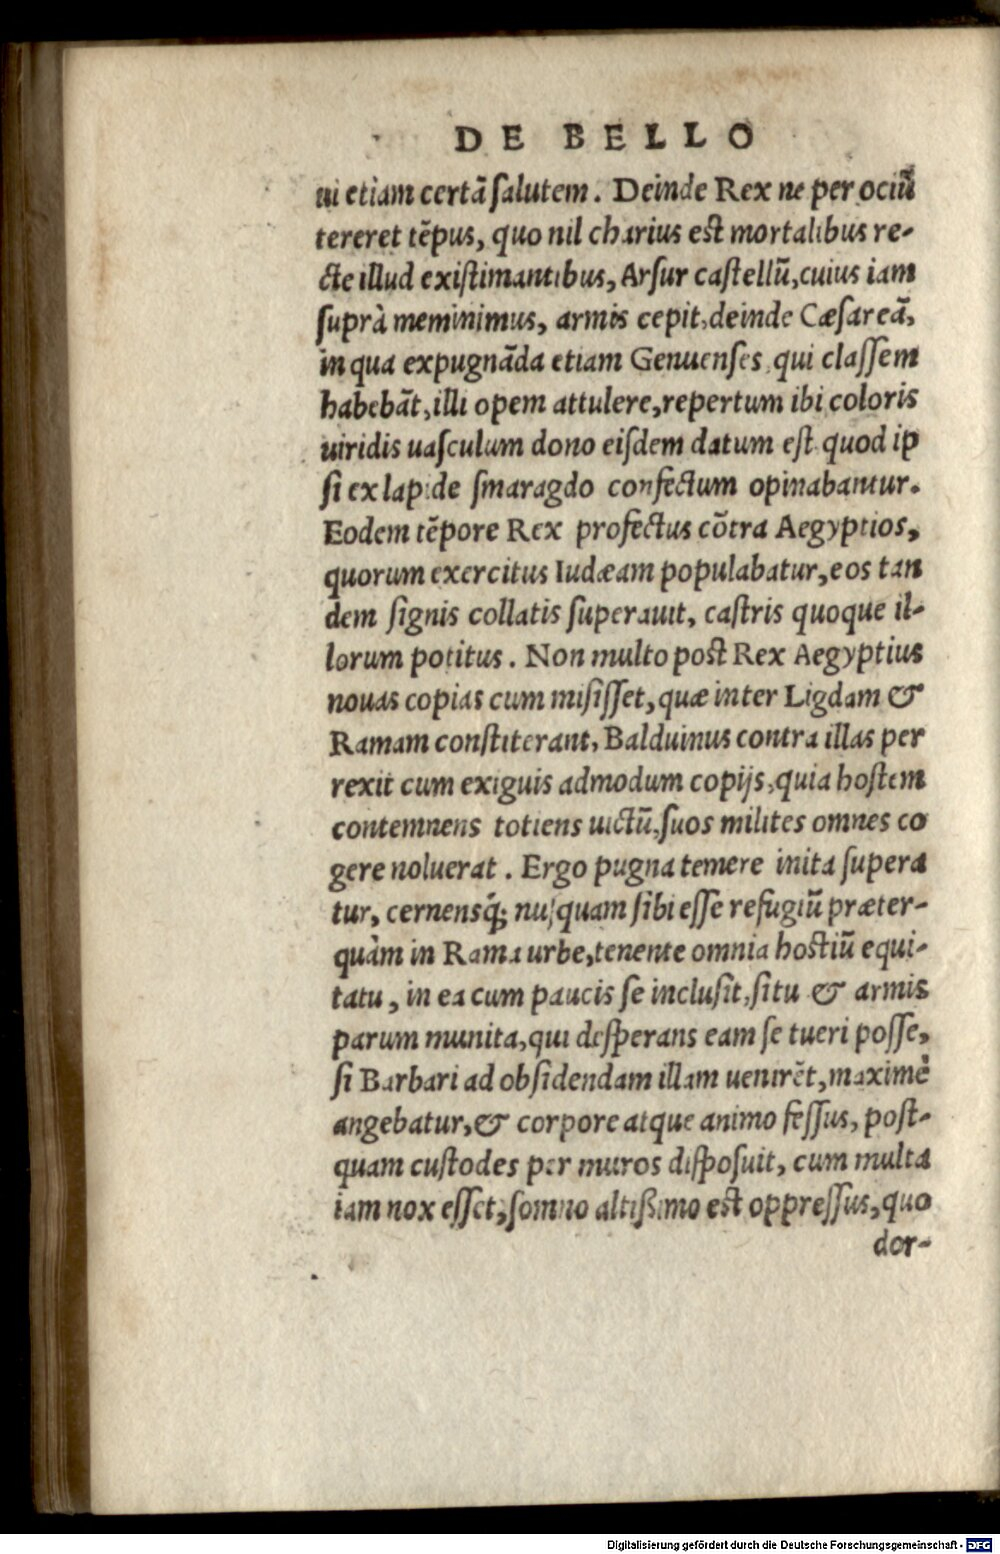 DE BELLO
ui etiam certā ſalutem. Deinde Rex ne per ociū
tereret tēpus, quo nil charius est mortalibus re-
cte illud exiſtimantibus, Arſur caſtellū, cuius iam
ſuprà meminimus, armis cepit, deinde Cæſareā,
in qua expugnāda etiam Genuenſes, qui claſſem
habebāt, illi opem attulere, repertum ibi coloris
uiridis uaſculum dono eiſdem datum eſt quod ip
ſi ex lapide ſmaragdo confectum opinabantur.
Eodem tēpore Rex profectus cōtra Aegyptios,
quorum exercitus Iudæam populabatur, eos tan
dem ſignis collatis ſuperauit, caſtris quoque il-
lorum potitus. Non multo post Rex Aegyptius
nouas copias cum miſiſſet, quæ inter Ligdam &
Ramam conſtiterant, Balduinus contra illas per
rexit cum exiguis admodum copijs, quia hoſtem
contemnens totiens uictū, ſuos milites omnes co
gere noluerat. Ergo pugna temere inita ſupera
tur, cernensq́; nuſquam ſibi eſſe refugiū præter-
quàm in Rama urbe, tenente omnia hostiū equi-
tatu, in ea cum paucis ſe incluſit, ſitu & armis
parum munita, qui deſperans eam ſe tueri poſſe,
ſi Barbari ad obſidendam illam uenirēt, maximè
angebatur, & corpore atque animo feſſus, poſt-
quam cuſtodes per muros diſpoſuit, cum multa
iam nox eſſet, ſomno altißimo est oppreſſus, quo
dor-
Digitalisierung gefördert durch die Deutsche Forschungsgemeinschaft - DFG